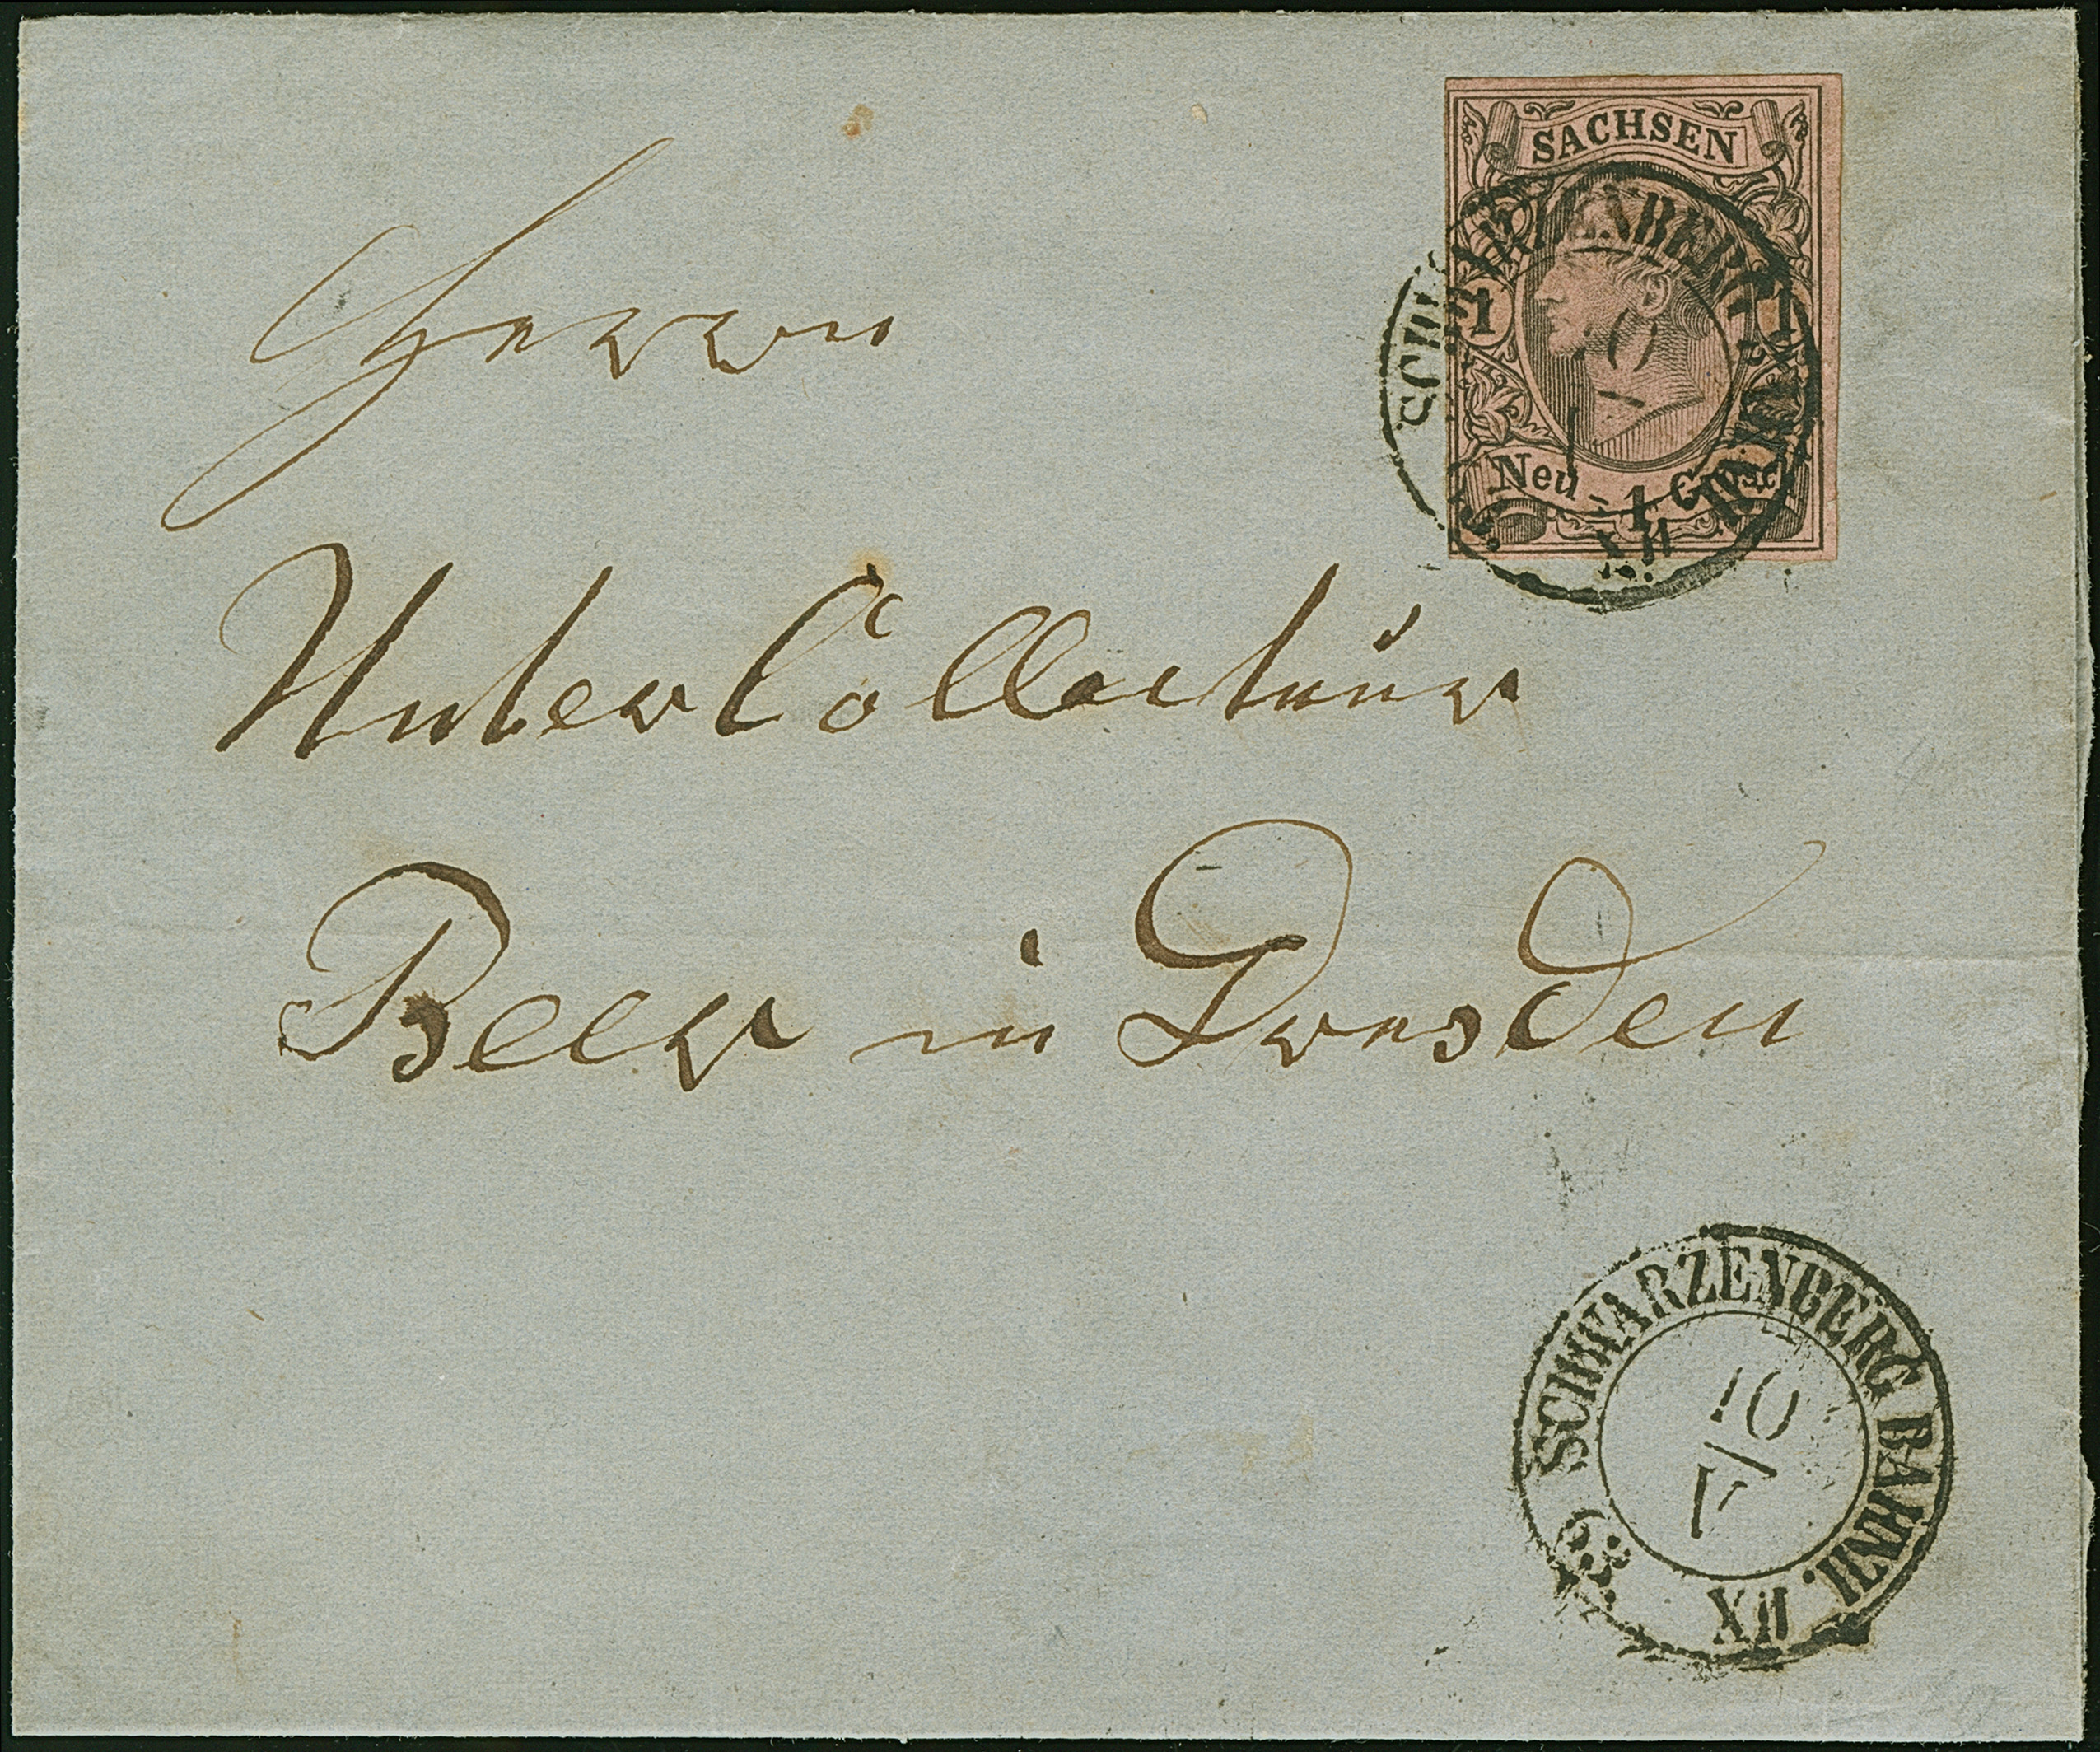 SACHSEN
1 1
Neu-1 Grosch.
SCHWARZENBERG BAHNH.
10
XII
Herrn
Unter Collecteur
Beer in Dresden
SCHWARZENBERG BAHNH.
10
V
XII